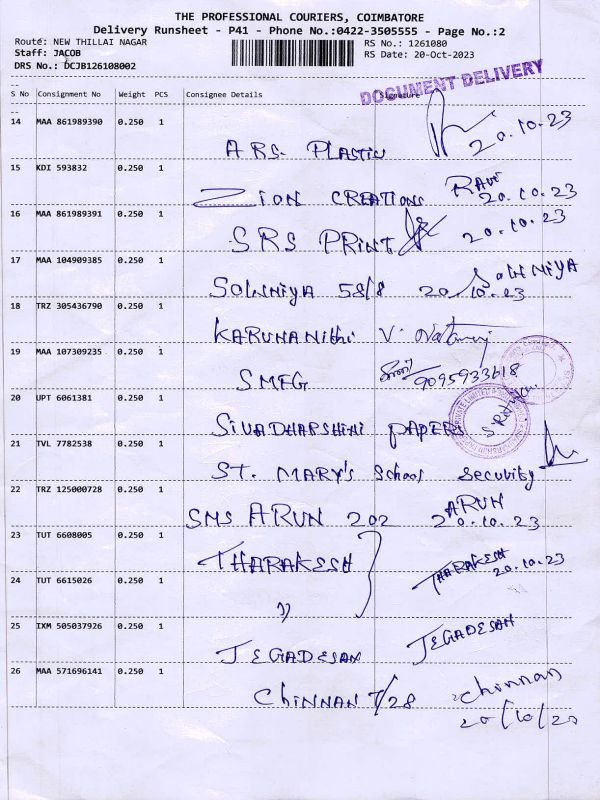 THE PROFESSIONAL COURIERS, COIMBATORE
Delivery Runsheet - P41 - Phone No.:0422-3505555 - Page No.:2
Route: NEW THILLAI NAGAR RS No.: 1261080
Staff: JACOB RS Date: 20-Oct-2023
DRS No.: DCJB126108002
DOCUMENT DELIVERY
S No Consignment No Weight PCS Consignee Details Signature
14 MAA 861989390 0.250 1
ARS PLASTIC 20.10.23
15 KDI 593832 0.250 1
ZION CREATIONS RAVI 20.10.23
16 MAA 861989391 0.250 1
SRS PRINT 20.10.23
17 MAA 104909385 0.250 1
SOWNIYA 58/8 SOWNIYA 20.10.23
18 TRZ 305436790 0.250 1
KARUNANithi V.
19 MAA 107309235 0.250 1
SMFG 9095933618
20 UPT 6061381 0.250 1
SIVADHARSHINI PAPERS
21 TVL 7782538 0.250 1
ST. MARY'S School Security
22 TRZ 125000728 0.250 1
SMS ARUN 202 ARUN 20.10.23
23 TUT 6608005 0.250 1
THARAKESH THARAKESH 20.10.23
24 TUT 6615026 0.250 1
"
25 IXM 505037926 0.250 1
JEGADESAN JEGADESAN
26 MAA 571696141 0.250 1
CHINNAN 7/28 chinnan
20/10/20